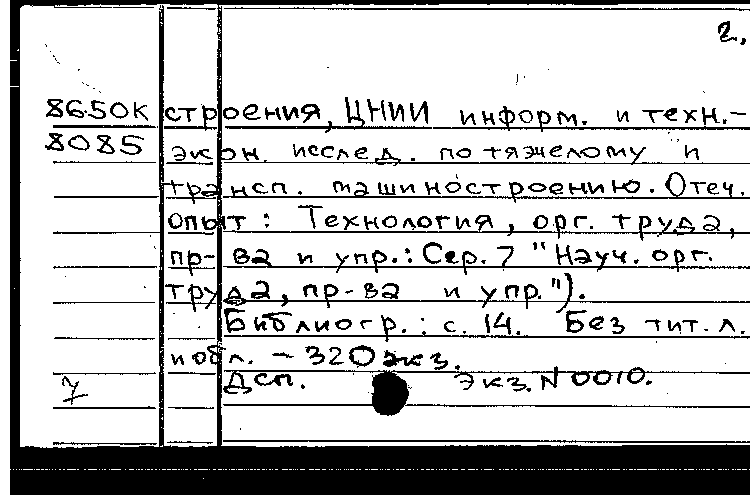 2.
8650К строения, ЦНИИ информ. и техн.-
8085 экон. исслед. по тяжелому и
трансп. машиностроению. Отеч.
опыт: Технология, орг. труда,
пр-ва и упр.: Сер. 7 "Науч. орг.
труда, пр-ва и упр.").
Библиогр.: с. 14. Без тит. л.
и обл. - 320 экз.
7 Дсп. Экз. N 0010.